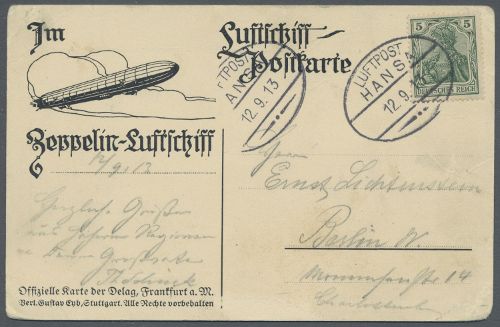 Im
Luftschiff-
Postkarte
Zeppelin-Luftschiff
LUFTPOST
HANSA
12.9.13
LUFTPOST
HANSA
12.9.13
5 5
DEUTSCHES REICH
12/9 13
Herrn
Ernst Lichtenstein
Berlin W.
Mommsenstr 14
Charlottenbg
Herzliche Grüße
aus höheren Regionen
Offizielle Karte der Delag, Frankfurt a. M.
Verl. Gustav Eyb, Stuttgart. Alle Rechte vorbehalten